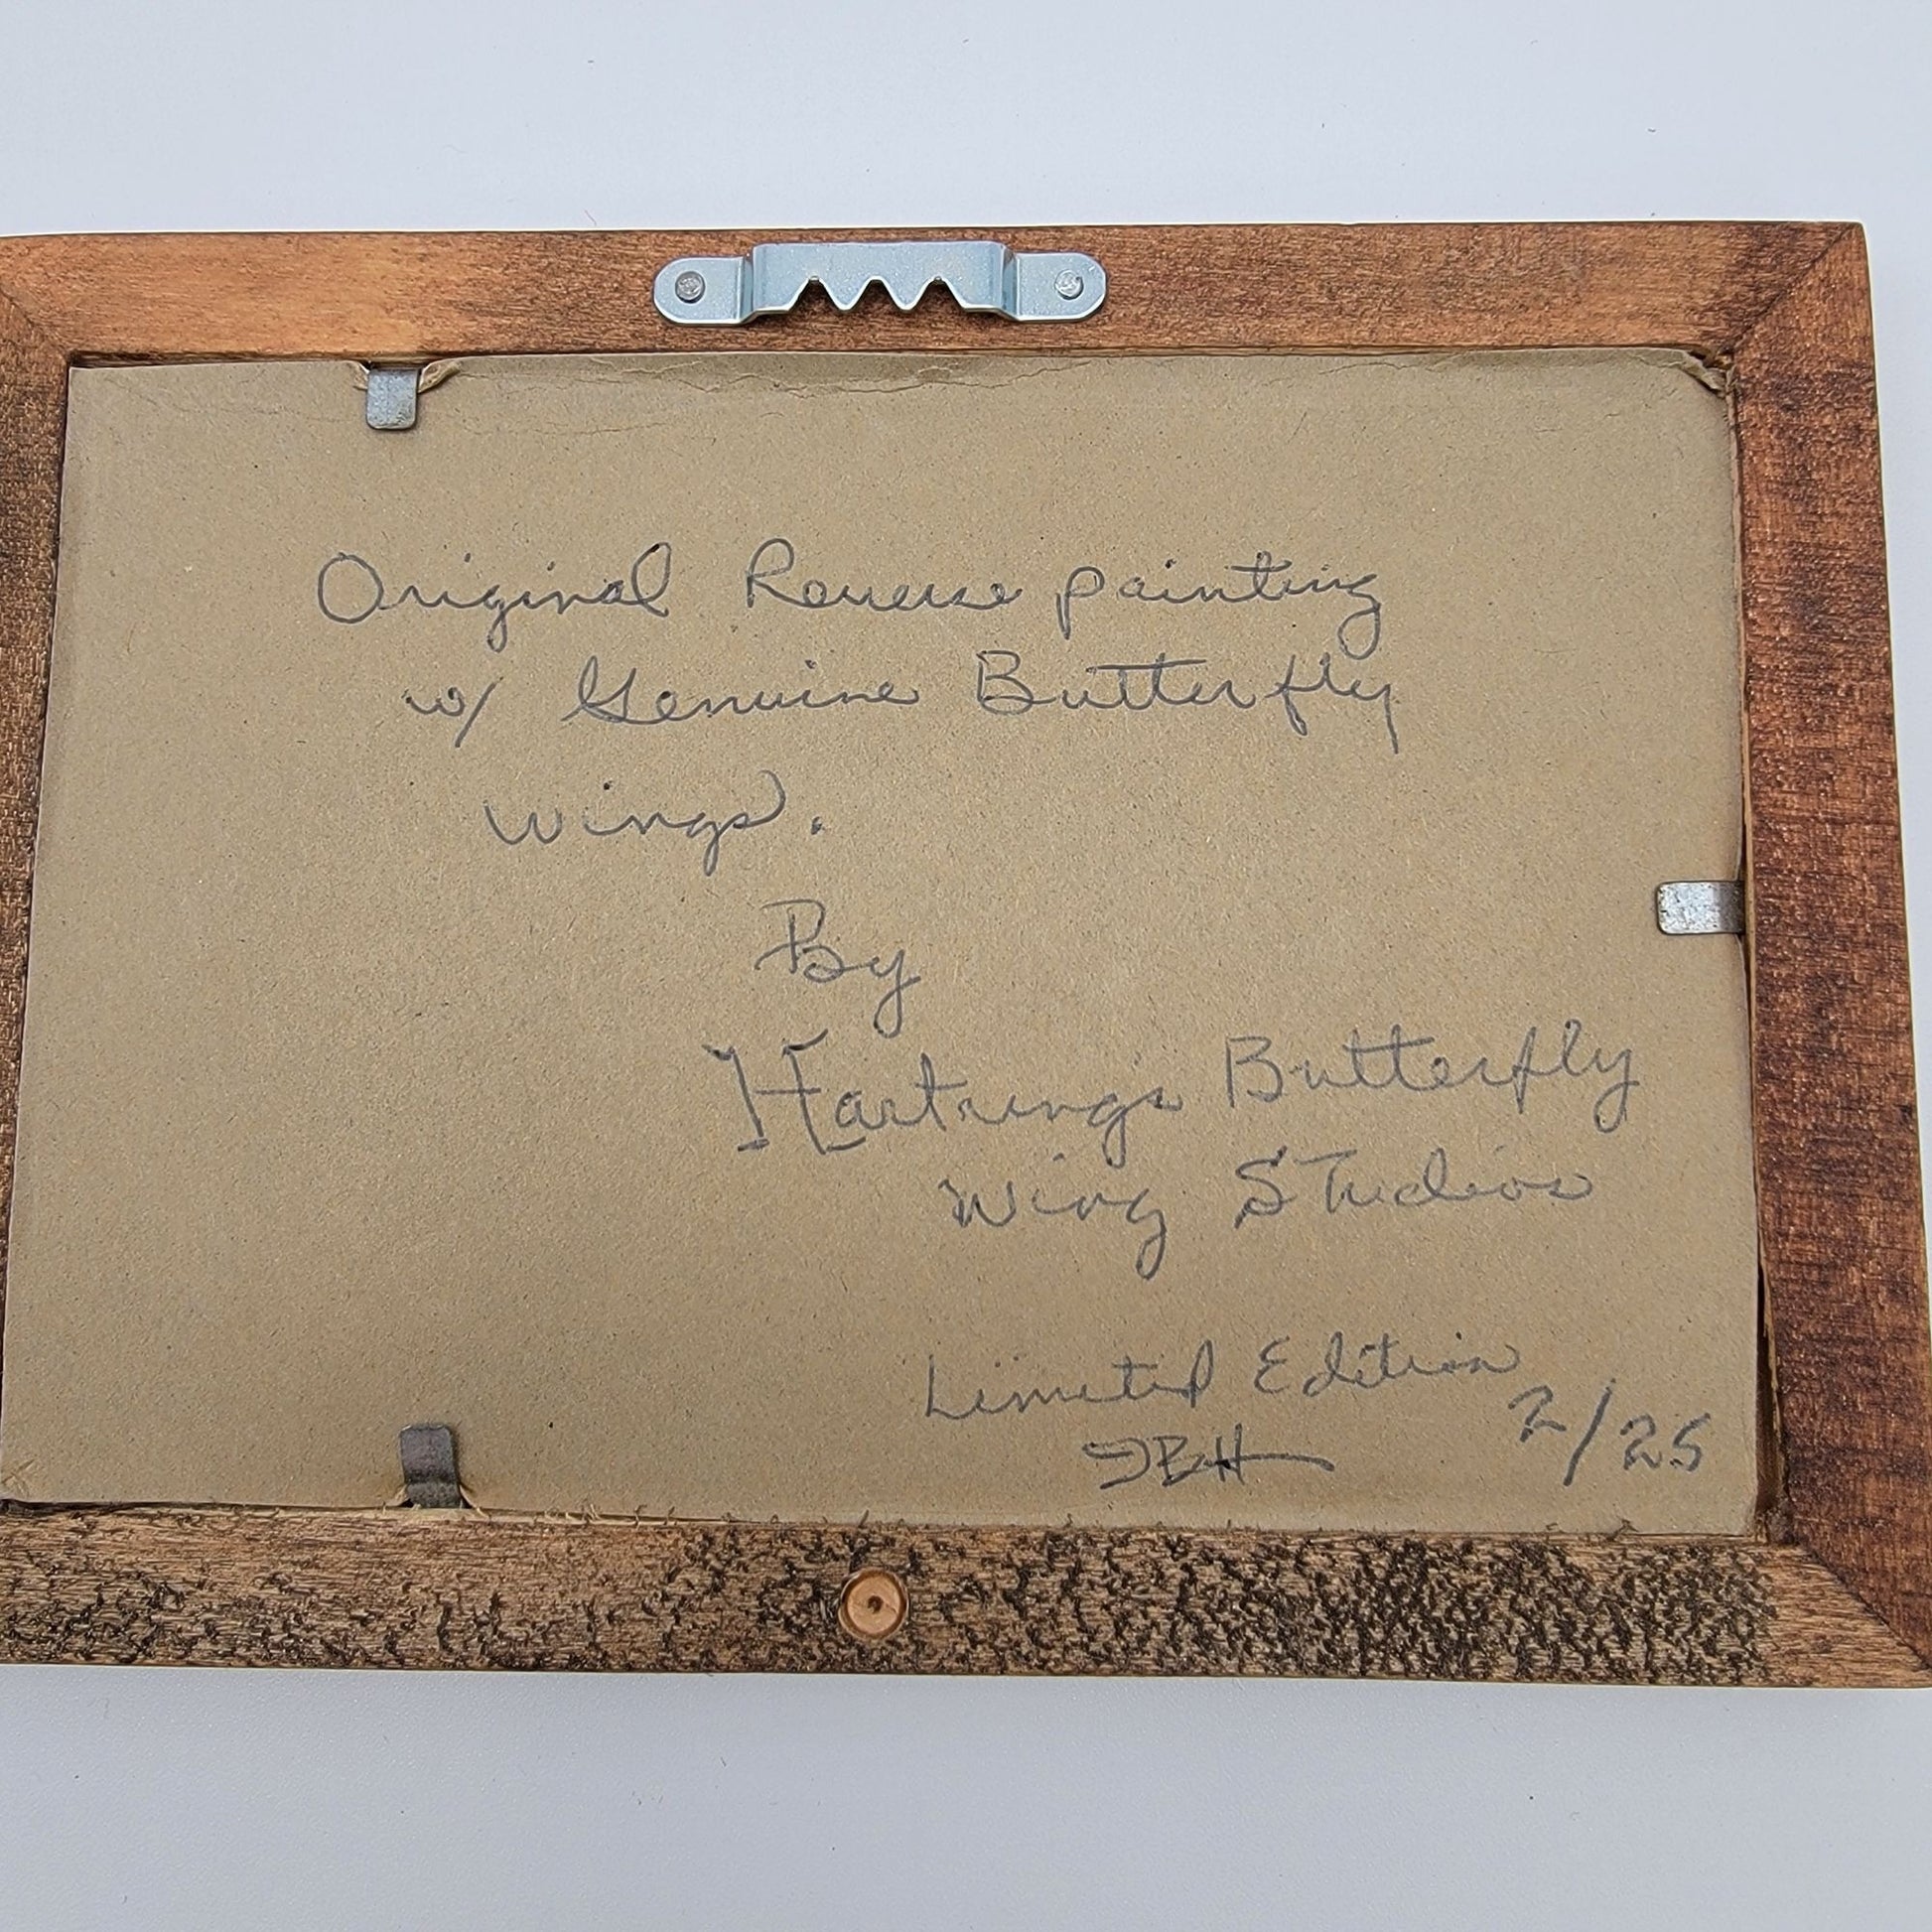 Original Reverse painting
w/ Genuine Butterfly
wings.
By
Hartrings Butterfly
Wing Studios
Limited Edition
2/25
JBH